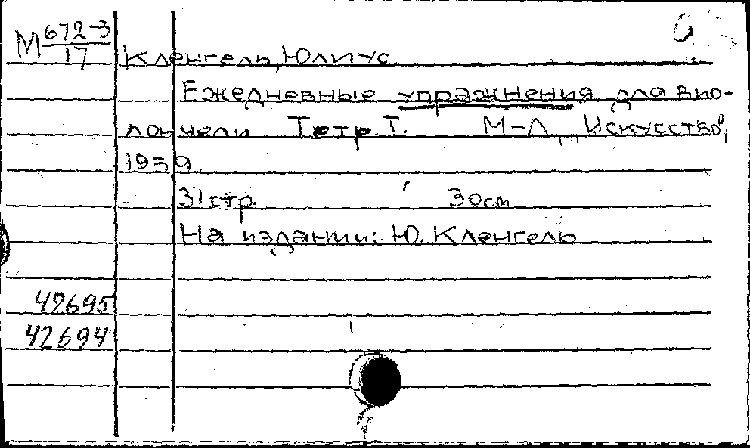 М 672-3
17
Кленгель, Юлиус
Ежедневные упражнения для вио-
лончели Тетр. I. М-Л, "Искусство",
1939
31 стр. 30 см
На издании: Ю. Кленгель
42695
42694